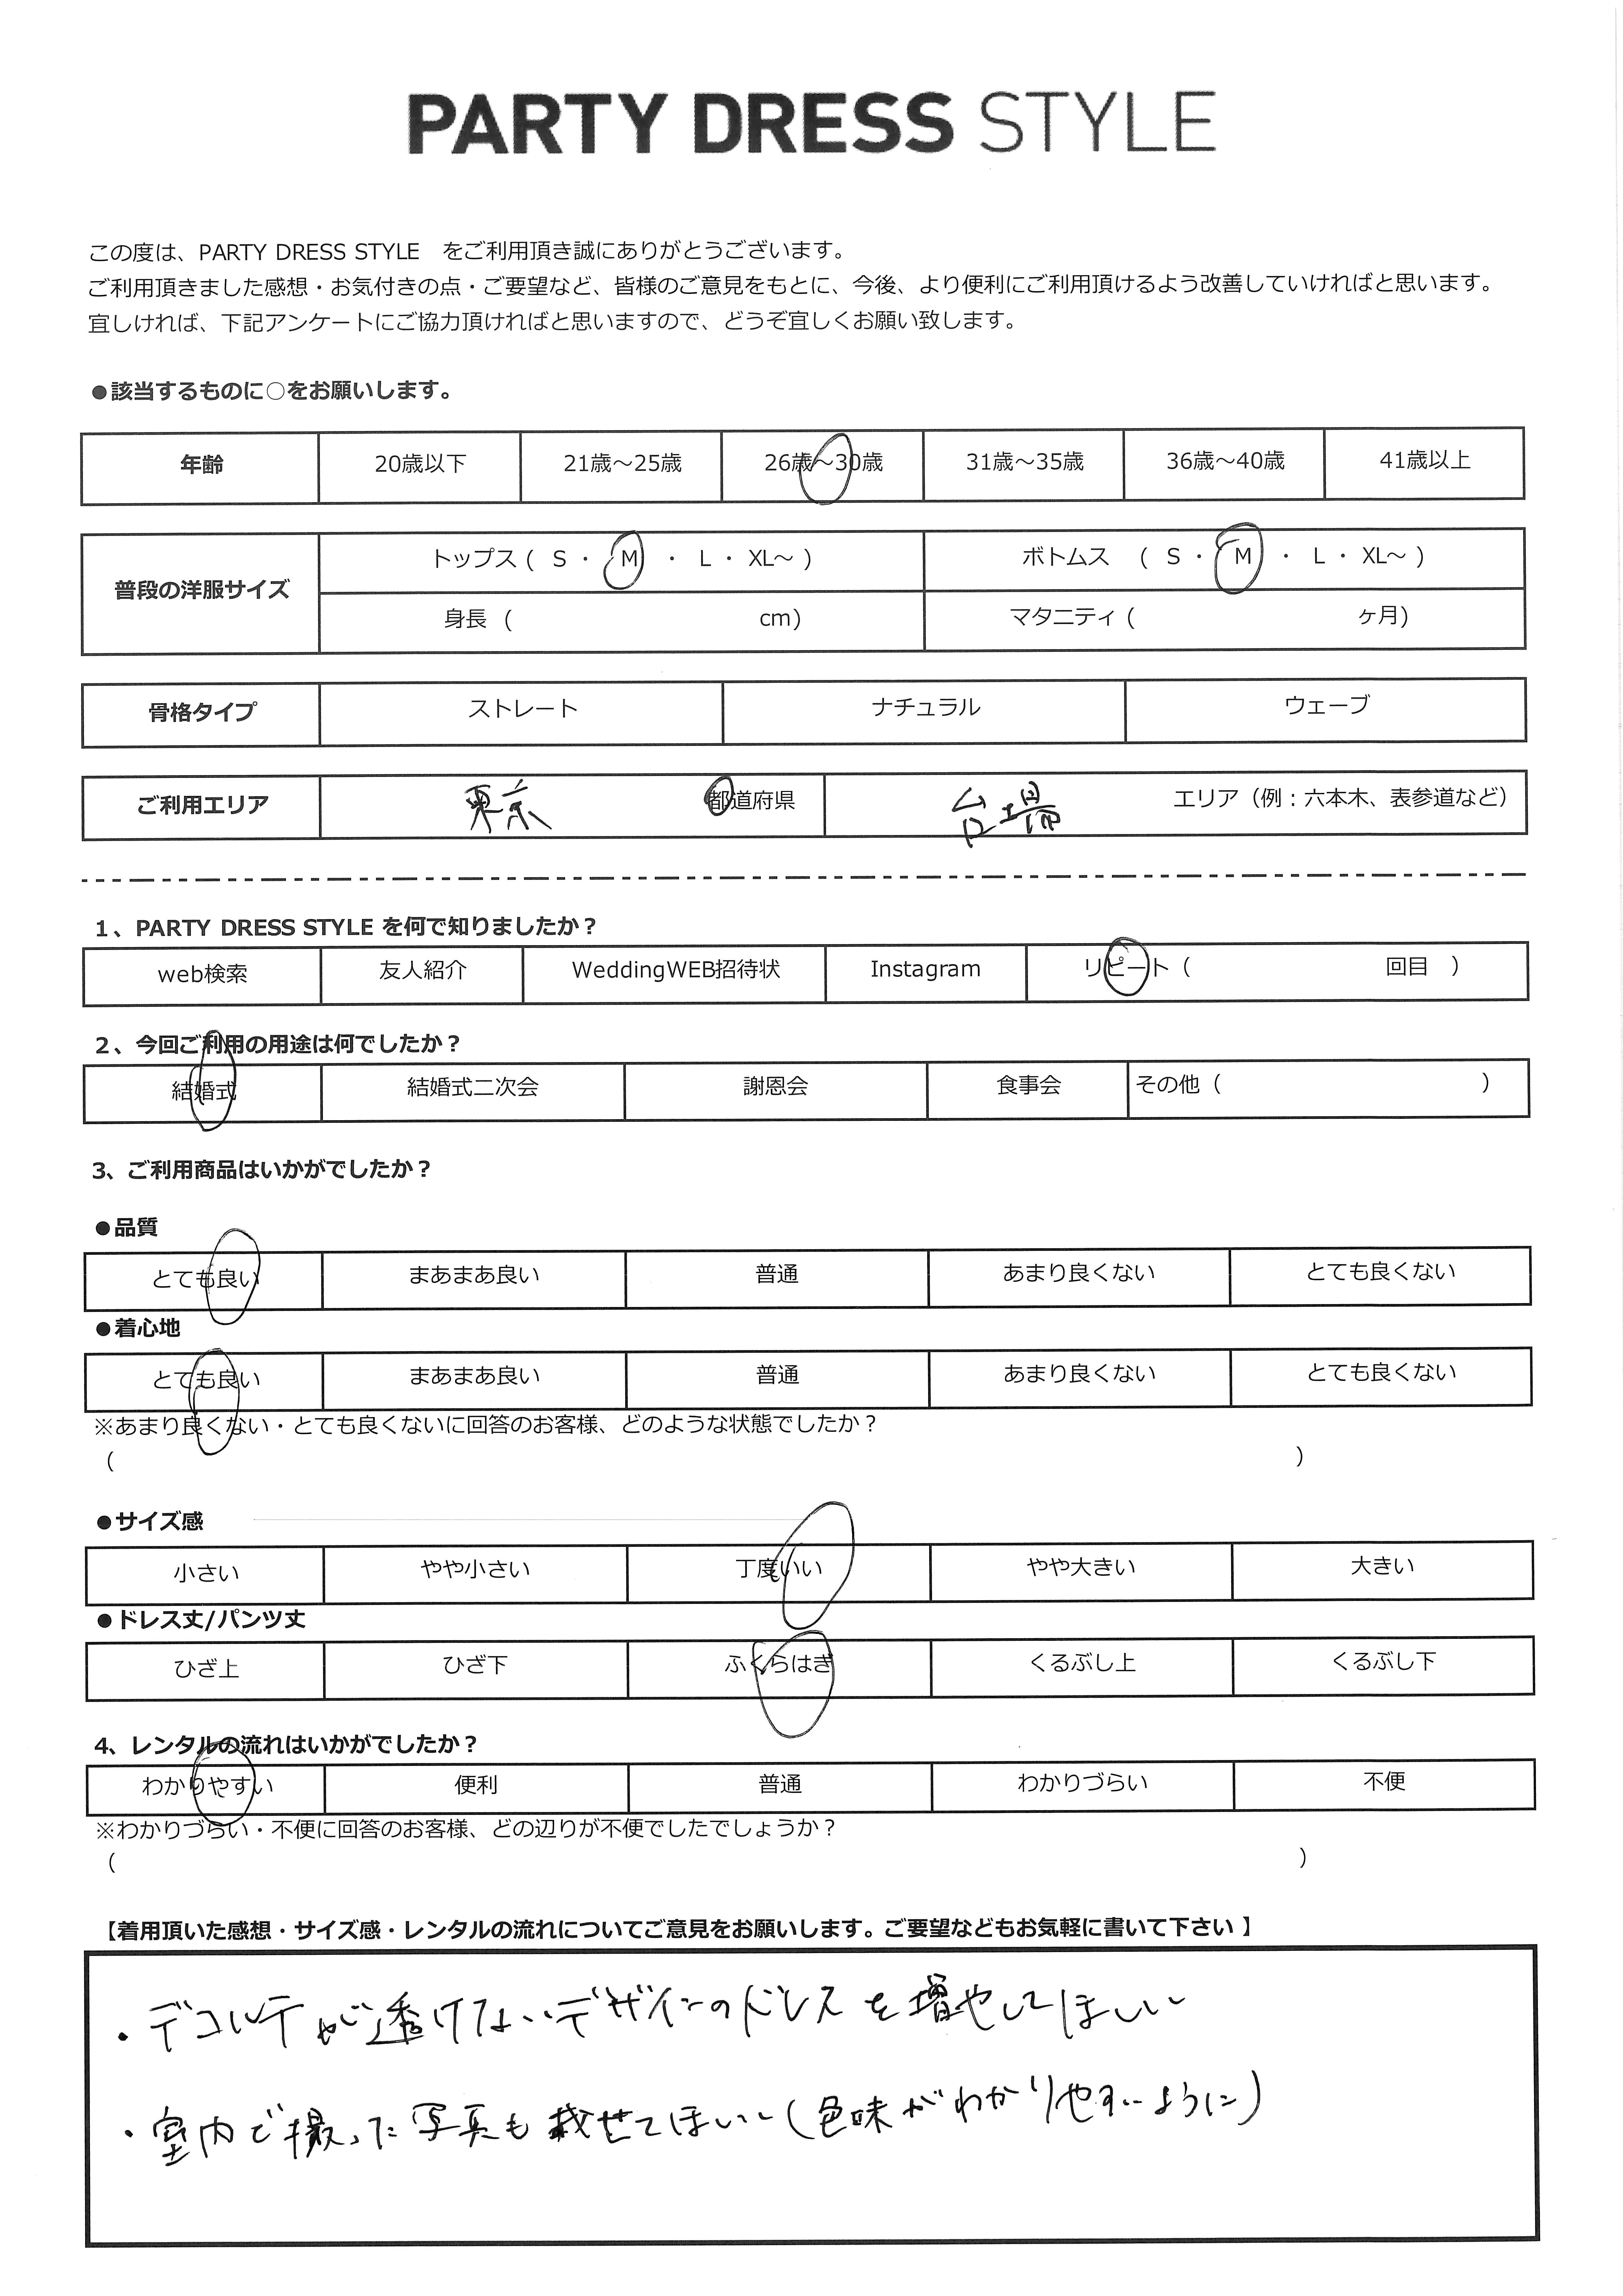 PARTY DRESS STYLE
この度は、PARTY DRESS STYLE をご利用頂き誠にありがとうございます。
ご利用頂きました感想・お気付きの点・ご要望など、皆様のご意見をもとに、今後、より便利にご利用頂けるよう改善していければと思います。
宜しければ、下記アンケートにご協力頂ければと思いますので、どうぞ宜しくお願い致します。
●該当するものに○をお願いします。
年齢 20歳以下 21歳～25歳 26歳～30歳 31歳～35歳 36歳～40歳 41歳以上
普段の洋服サイズ トップス ( S ・ M ・ L ・ XL～ ) ボトムス ( S ・ M ・ L ・ XL～ )
身長 ( cm) マタニティ ( ヶ月)
骨格タイプ ストレート ナチュラル ウェーブ
ご利用エリア 東京 都道府県 台場 エリア（例：六本木、表参道など）
1、PARTY DRESS STYLE を何で知りましたか？
web検索 友人紹介 WeddingWEB招待状 Instagram リピート（ 回目 ）
2、今回ご利用の用途は何でしたか？
結婚式 結婚式二次会 謝恩会 食事会 その他（ ）
3、ご利用商品はいかがでしたか？
●品質
とても良い まあまあ良い 普通 あまり良くない とても良くない
●着心地
とても良い まあまあ良い 普通 あまり良くない とても良くない
※あまり良くない・とても良くないに回答のお客様、どのような状態でしたか？
（ ）
●サイズ感
小さい やや小さい 丁度いい やや大きい 大きい
●ドレス丈/パンツ丈
ひざ上 ひざ下 ふくらはぎ くるぶし上 くるぶし下
4、レンタルの流れはいかがでしたか？
わかりやすい 便利 普通 わかりづらい 不便
※わかりづらい・不便に回答のお客様、どの辺りが不便でしたでしょうか？
（ ）
【着用頂いた感想・サイズ感・レンタルの流れについてご意見をお願いします。ご要望などもお気軽に書いて下さい 】
・デコルテが透けないデザインのドレスを増やしてほしい
・室内で撮った写真も載せてほしい（色味がわかりやすいように）